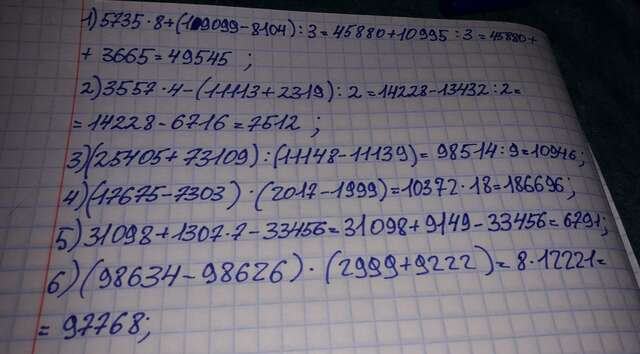 1) 5735·8+(19099-8104):3=45880+10995:3=45880+
+3665=49545 ;
2) 3557·4-(11113+2319):2=14228-13432:2=
=14228-6716=7512 ;
3) (25405+73109):(11148-11139)=98514:9=10946;
4) (17675-7303)·(2017-1999)=10372·18=186696;
5) 31098+1307·7-33456=31098+9149-33456=6791;
6) (98634-98626)·(2999+9222)=8·12221=
=97768;